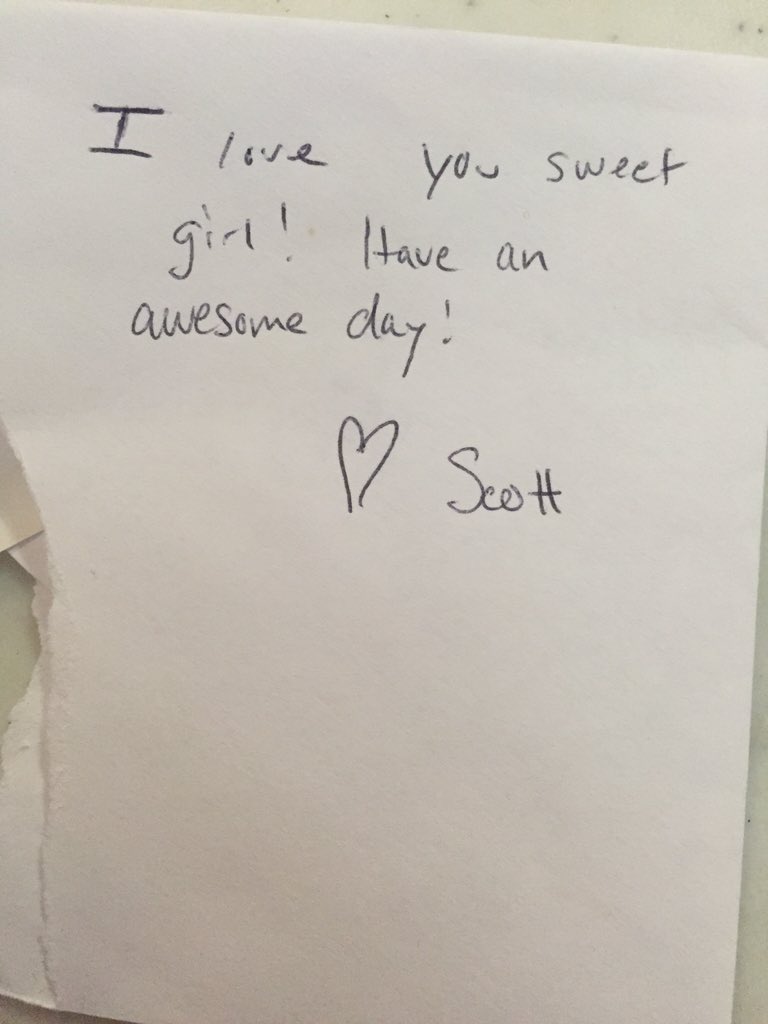 I love you sweet
girl! Have an
awesome day!
♡ Scott